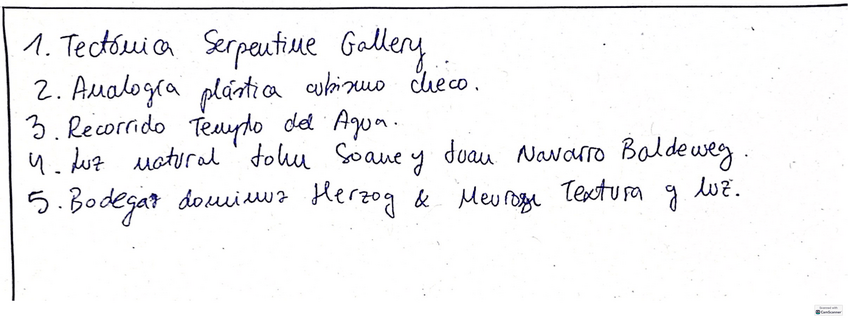 1. Tectónica Serpentine Gallery
2. Analogía plástica cubismo checo.
3. Recorrido Templo del Agua.
4. Luz natural John Soane y Juan Navarro Baldeweg.
5. Bodegas dominus Herzog & Meuron Textura y luz.
Scanned with
CamScanner